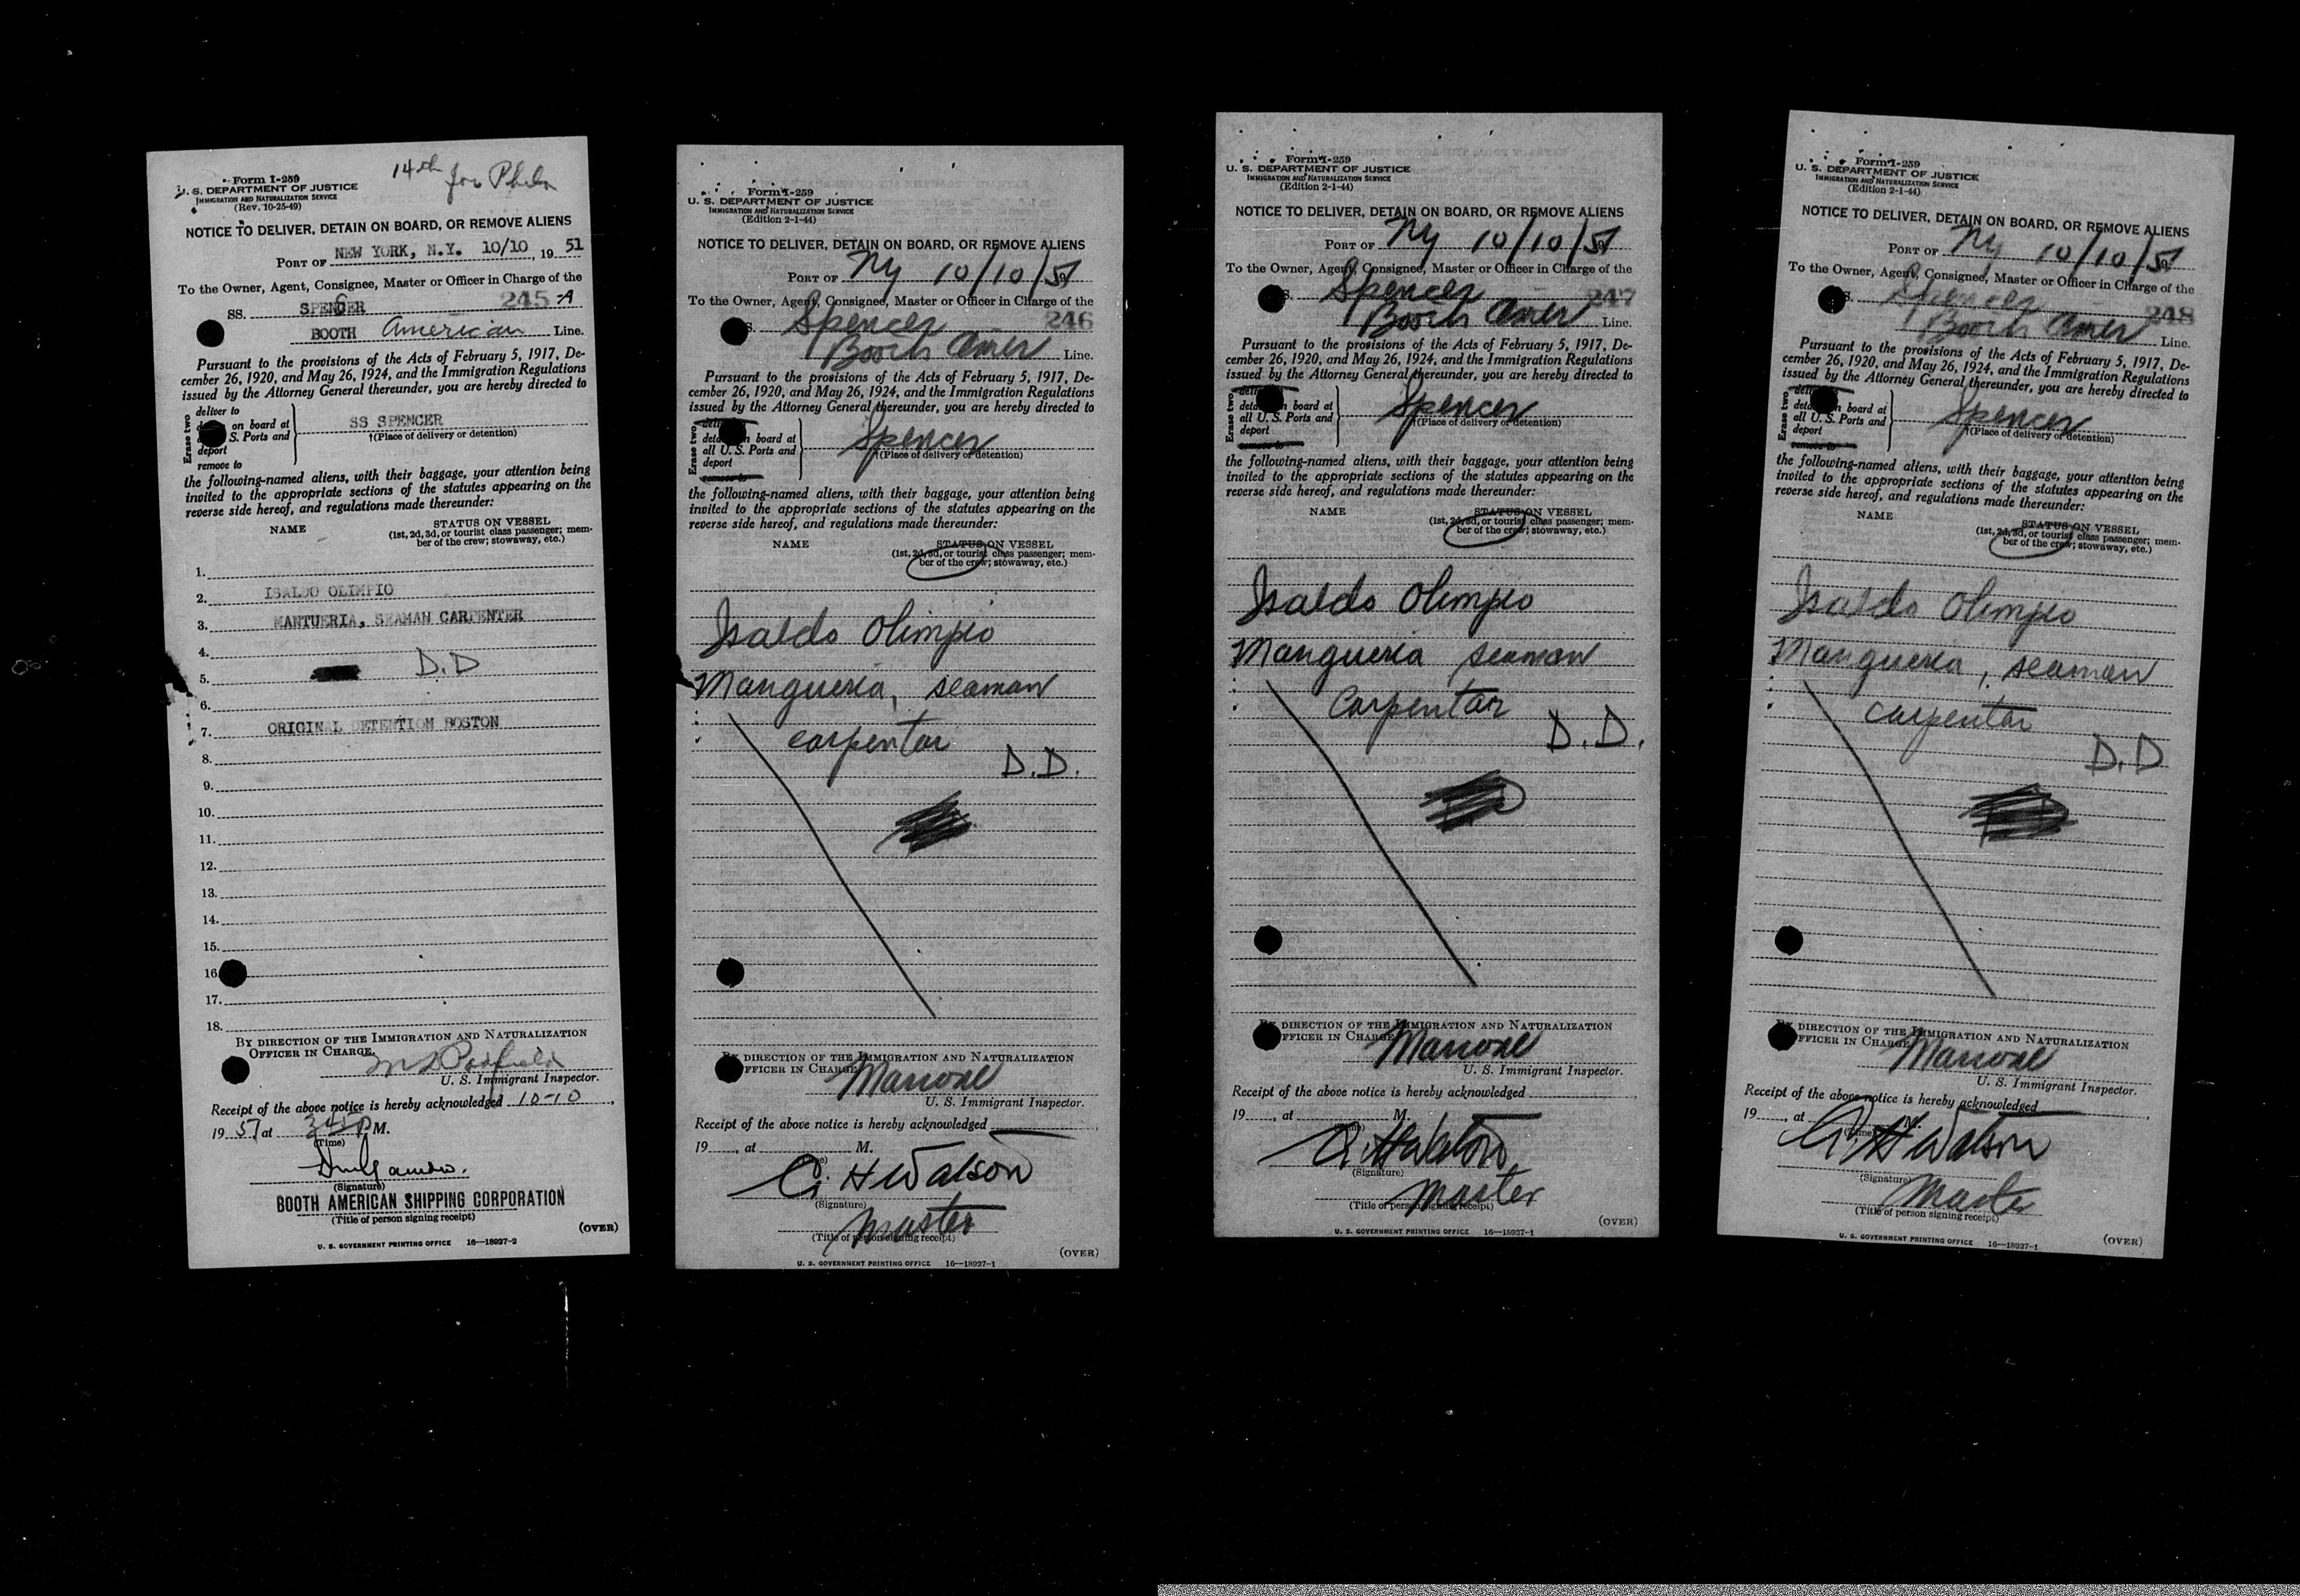 14th for Phila
Form I-259
U. S. DEPARTMENT OF JUSTICE
IMMIGRATION AND NATURALIZATION SERVICE
(Rev. 10-25-49)
NOTICE TO DELIVER, DETAIN ON BOARD, OR REMOVE ALIENS
PORT OF NEW YORK, N.Y. 10/10, 1951
To the Owner, Agent, Consignee, Master or Officer in Charge of the
SS. SPENCER 245-A
BOOTH American Line.
Pursuant to the provisions of the Acts of February 5, 1917, De-
cember 26, 1920, and May 26, 1924, and the Immigration Regulations
issued by the Attorney General thereunder, you are hereby directed to
Erase two
deliver to
on board at
S. Ports and
deport
remove to
SS SPENCER
†(Place of delivery or detention)
the following-named aliens, with their baggage, your attention being
invited to the appropriate sections of the statutes appearing on the
reverse side hereof, and regulations made thereunder:
NAME STATUS ON VESSEL
(1st, 2d, 3d, or tourist class passenger; mem-
ber of the crew; stowaway, etc.)
1.
2. ISALDO OLIMPIO
3. MANTUERIA, SEAMAN CARPENTER
4.
5. D.D
6.
7. ORIGINAL DETENTION BOSTON
8.
9.
10.
11.
12.
13.
14.
15.
16
17.
18.
BY DIRECTION OF THE IMMIGRATION AND NATURALIZATION
OFFICER IN CHARGE.
U. S. Immigrant Inspector.
Receipt of the above notice is hereby acknowledged 10-10,
1951 at 345P M.
(Time)
(Signature)
BOOTH AMERICAN SHIPPING CORPORATION
(Title of person signing receipt)
(OVER)
U. S. GOVERNMENT PRINTING OFFICE 16—18927-2
Form I-259
U. S. DEPARTMENT OF JUSTICE
IMMIGRATION AND NATURALIZATION SERVICE
(Edition 2-1-44)
NOTICE TO DELIVER, DETAIN ON BOARD, OR REMOVE ALIENS
PORT OF NY 10/10/51
To the Owner, Agent, Consignee, Master or Officer in Charge of the
S. Spencer 246
Booth Amer Line.
Pursuant to the provisions of the Acts of February 5, 1917, De-
cember 26, 1920, and May 26, 1924, and the Immigration Regulations
issued by the Attorney General thereunder, you are hereby directed to
Erase two
board at
all U. S. Ports and
deport
remove to
Spencer
†(Place of delivery or detention)
the following-named aliens, with their baggage, your attention being
invited to the appropriate sections of the statutes appearing on the
reverse side hereof, and regulations made thereunder:
NAME STATUS ON VESSEL
(1st, 2d, 3d, or tourist class passenger; mem-
ber of the crew; stowaway, etc.)
Isaldo Olimpio
Mangueria, seaman
carpentar
D.D.
BY DIRECTION OF THE IMMIGRATION AND NATURALIZATION
OFFICER IN CHARGE
Marrone
U. S. Immigrant Inspector.
Receipt of the above notice is hereby acknowledged
19 , at M.
C. H Watson
(Signature)
Master
(Title of person signing receipt)
(OVER)
U. S. GOVERNMENT PRINTING OFFICE 16—18927-1
Form I-259
U. S. DEPARTMENT OF JUSTICE
IMMIGRATION AND NATURALIZATION SERVICE
(Edition 2-1-44)
NOTICE TO DELIVER, DETAIN ON BOARD, OR REMOVE ALIENS
PORT OF NY 10/10/51
To the Owner, Agent, Consignee, Master or Officer in Charge of the
S. Spencer 247
Booth Amer Line.
Pursuant to the provisions of the Acts of February 5, 1917, De-
cember 26, 1920, and May 26, 1924, and the Immigration Regulations
issued by the Attorney General thereunder, you are hereby directed to
Erase two
board at
all U. S. Ports and
deport
remove to
Spencer
†(Place of delivery or detention)
the following-named aliens, with their baggage, your attention being
invited to the appropriate sections of the statutes appearing on the
reverse side hereof, and regulations made thereunder:
NAME STATUS ON VESSEL
(1st, 2d, 3d, or tourist class passenger; mem-
ber of the crew; stowaway, etc.)
Isaldo Olimpio
Mangueria seaman
Carpentar
D.D.
BY DIRECTION OF THE IMMIGRATION AND NATURALIZATION
OFFICER IN CHARGE
Marrone
U. S. Immigrant Inspector.
Receipt of the above notice is hereby acknowledged
19 , at M.
C. H Watson
(Signature)
Master
(Title of person signing receipt)
(OVER)
U. S. GOVERNMENT PRINTING OFFICE 16—18927-1
Form I-259
U. S. DEPARTMENT OF JUSTICE
IMMIGRATION AND NATURALIZATION SERVICE
(Edition 2-1-44)
NOTICE TO DELIVER, DETAIN ON BOARD, OR REMOVE ALIENS
PORT OF NY 10/10/51
To the Owner, Agent, Consignee, Master or Officer in Charge of the
S. Spencer 248
Booth Amer Line.
Pursuant to the provisions of the Acts of February 5, 1917, De-
cember 26, 1920, and May 26, 1924, and the Immigration Regulations
issued by the Attorney General thereunder, you are hereby directed to
Erase two
board at
all U. S. Ports and
deport
remove to
Spencer
†(Place of delivery or detention)
the following-named aliens, with their baggage, your attention being
invited to the appropriate sections of the statutes appearing on the
reverse side hereof, and regulations made thereunder:
NAME STATUS ON VESSEL
(1st, 2d, 3d, or tourist class passenger; mem-
ber of the crew; stowaway, etc.)
Isaldo Olimpio
Mangueria, seaman
carpentar
D.D
BY DIRECTION OF THE IMMIGRATION AND NATURALIZATION
OFFICER IN CHARGE
Marrone
U. S. Immigrant Inspector.
Receipt of the above notice is hereby acknowledged
19 , at M.
(Time)
C. H Watson
(Signature)
Master
(Title of person signing receipt)
(OVER)
U. S. GOVERNMENT PRINTING OFFICE 16—18927-1